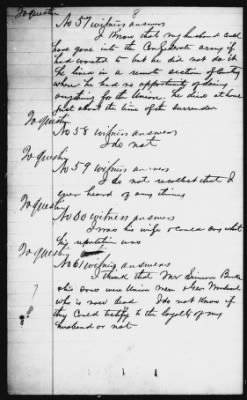 To question 9
No 57 witness answers
I Know that my husband could
have gone into the Confederate army if
had wanted to but he did not do it
He lived in a remote section of Country
where he had no opportunity of doing
anything for the Union. He died at home
just about the time of the surrender
To question
No 58 witness answers
I do not
To question
No 59 witness answers
I do not recollect that I
ever heard of any thing
To question
No 60 witness answers
I was his wife & could say what
his reputation was
To question
No 61 witness answers
I think that Mr Simeon
& his sons were Union men & Geo
who is now dead I do not know if
they Could testify to the loyalty of my
husband or not